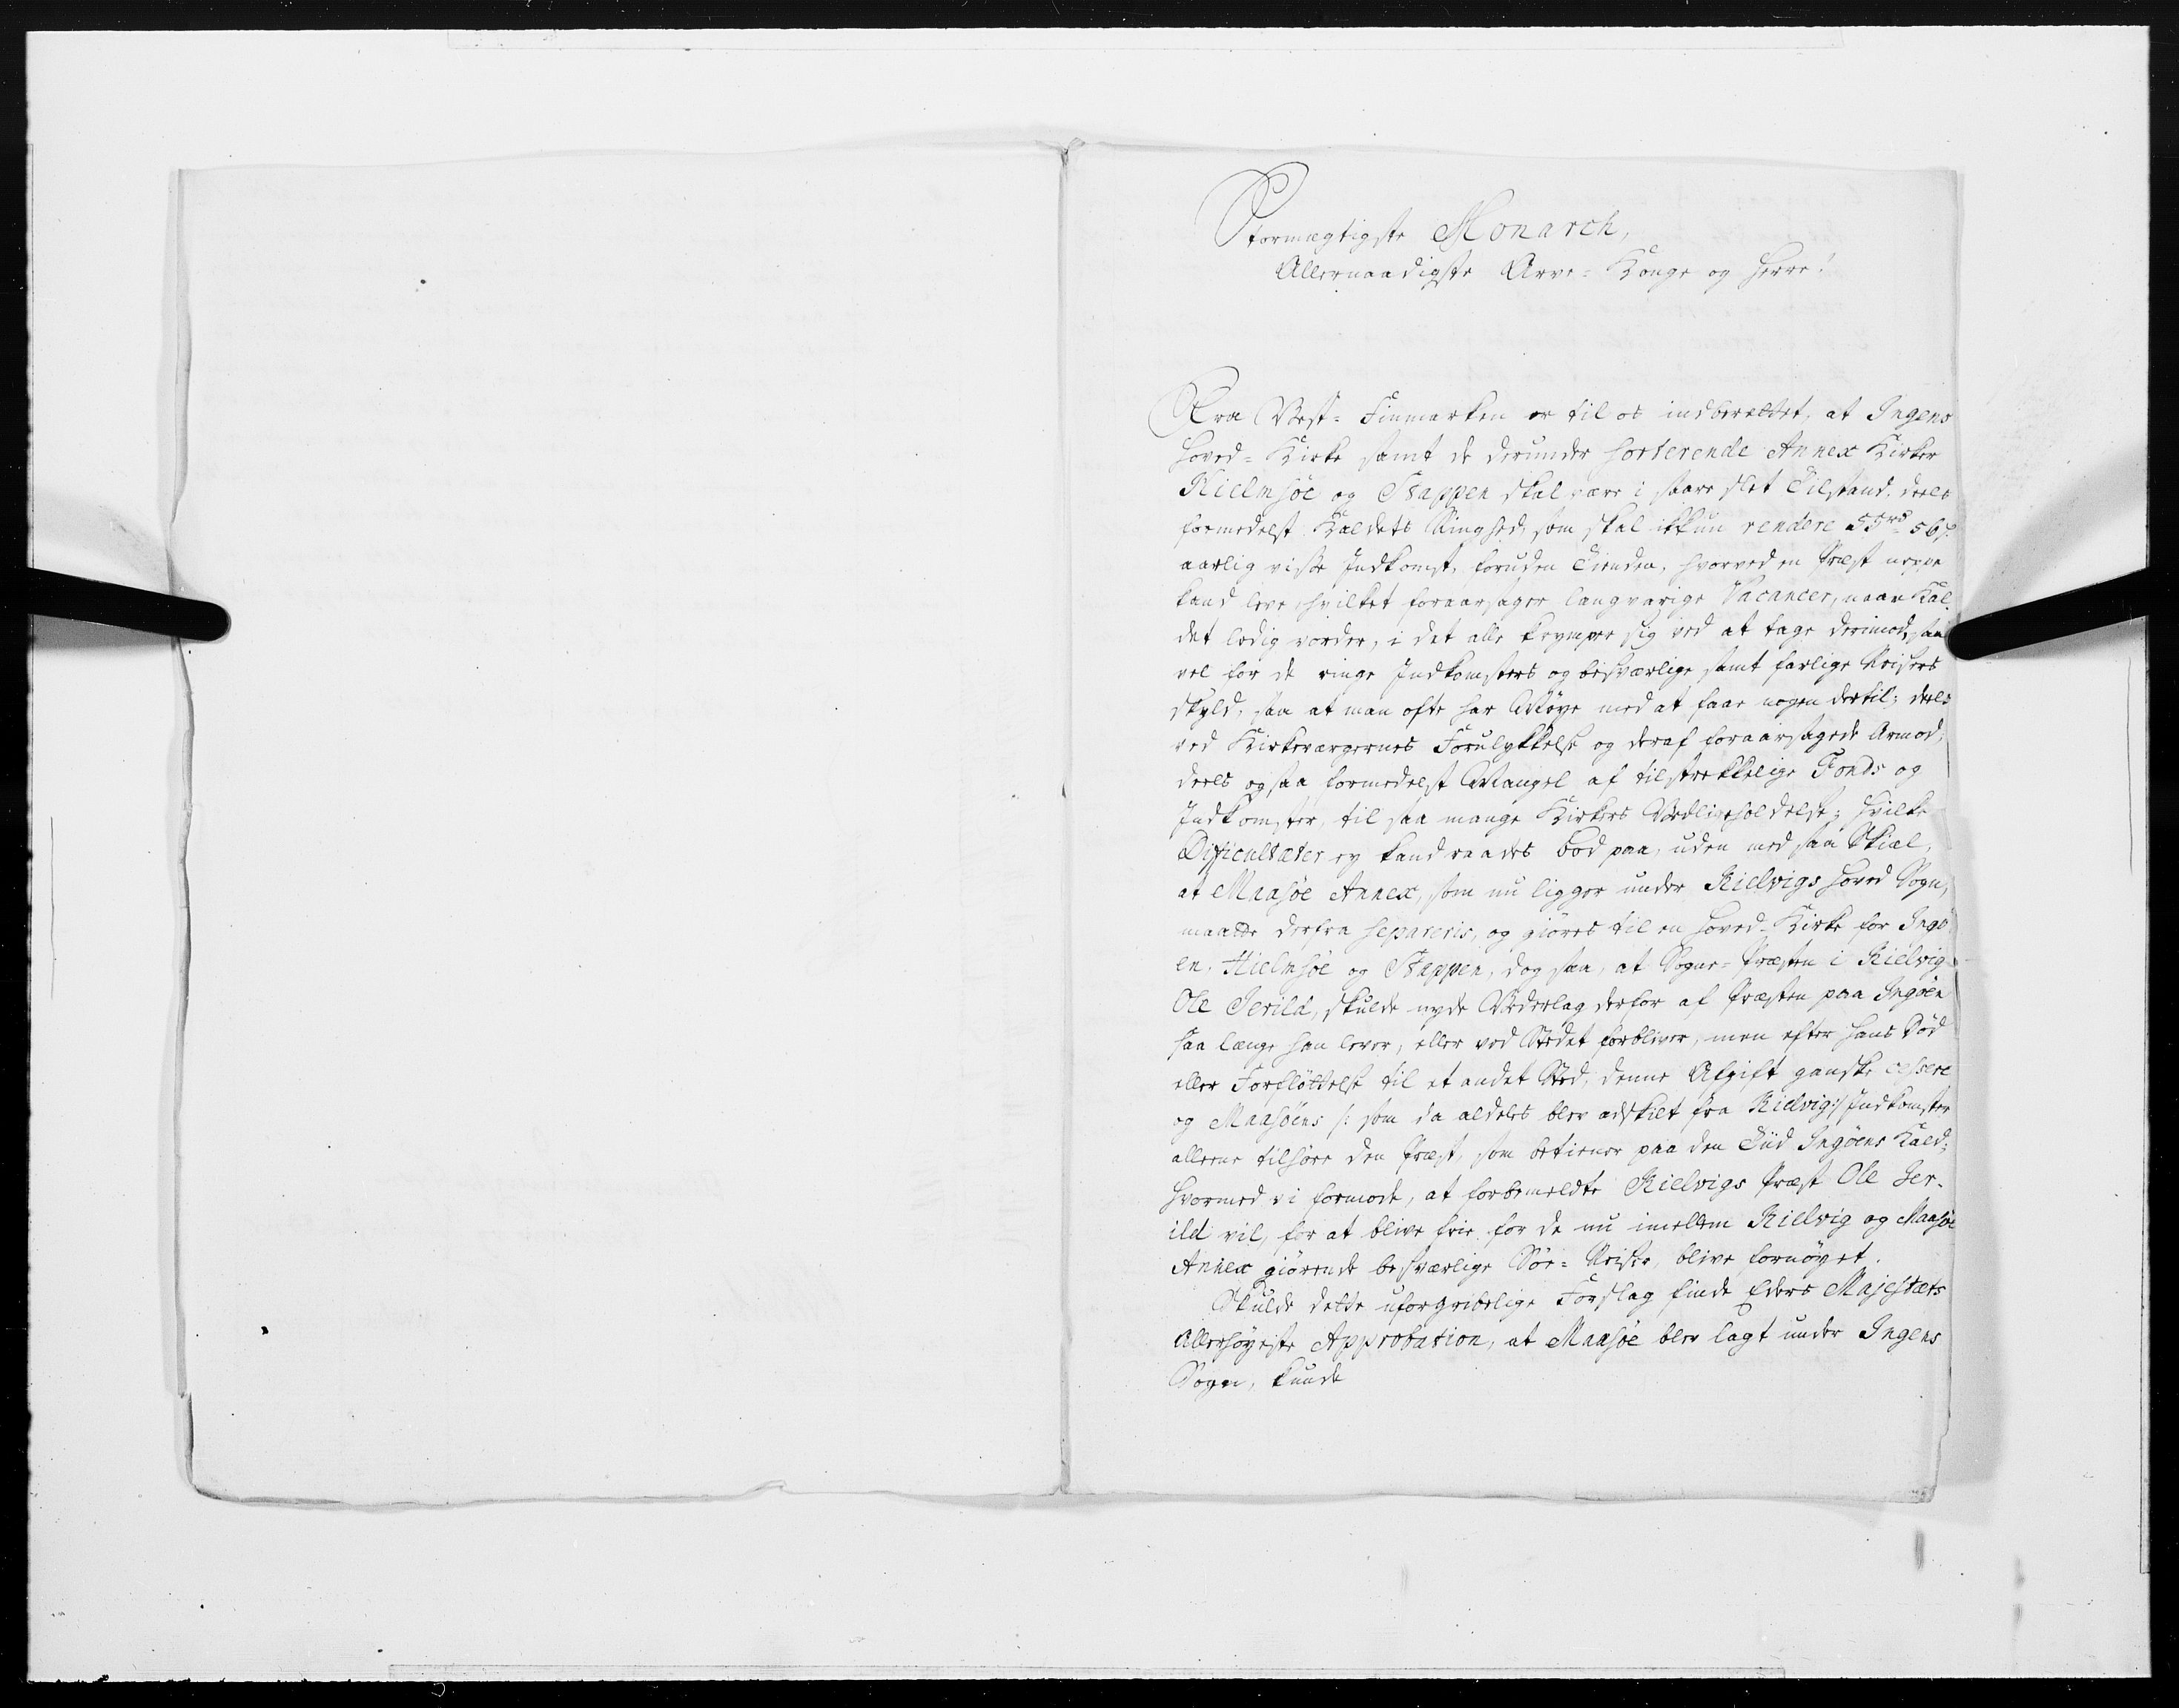 Stormægtigste Monarch,
Allernaadigste Arve-Konge og Herre!
Fra Vest-Finmarken er til os indberættet, at Ingens
Hoved-Kirke samt de derunder sorterende Annex Kirker
Hielmsöe og Stappen skal være i saare slet Tilstand, deels
formedelst Kaldets Ringhed, som skal ikkun rendere 55 rd 56 s
aarlig visse Indkomst, foruden Tienden, hvorved en Præst neppe
kand leve, hvilket foraarsager langvarige Vacancer, naar Kal-
det ledig vorder, i det alle krymper sig ved at tage derimod, saa
vel for de ringe Indkomsters og besværlige samt farlige Reisers
skyld, saa at man ofte har Møye med at faae nogen dertil; deels
ved Kirkeværgernes Forulykkelse og deraf foraarsagede Armod;
deels og saa formedelst Mangel af tilstrekkelige Fonds og
Indkomster, til saa mange Kirkers Vedligeholdelse; hvilke
Difficultæter ey kand raades bod paa, uden med saa Skiæl,
at Maasöe Annex, som nu ligger under Kielvigs Hoved Sogn,
maatte derfra separeris, og giøres til en Hoved-Kirke for Ingö-
en, Hielmsöe og Stappen, dog saa, at Sogne-Præsten i Kielvig
Ole Jerild, skulde nyde Vederlag derfor af Præsten paa Ingöen
saa længe han lever, eller ved Stedet forbliver, men efter hans Död
eller Forflöttelse til et andet Sted, denne Afgift ganske cessere
og Maasöens /: som da aldeles blev adskilt fra Kielvig :/ Indkomster
alleene tilhøre den Præst, som betiener paa den Tiid Ingöens Kald;
hvormed vi formode, at forbemeldte Kielvigs Præst Ole Jer-
ild vil, for at blive frie for de nu imellem Kielvig og Maasöe
Annex giørende besværlige Söe-Reiser, blive fornöyet.
Skulde dette uforgribelige Forslag finde Eders Majestæts
Allerhöyeste Approbation, at Maasöe blev lagt under Ingens
Sogn, kunde